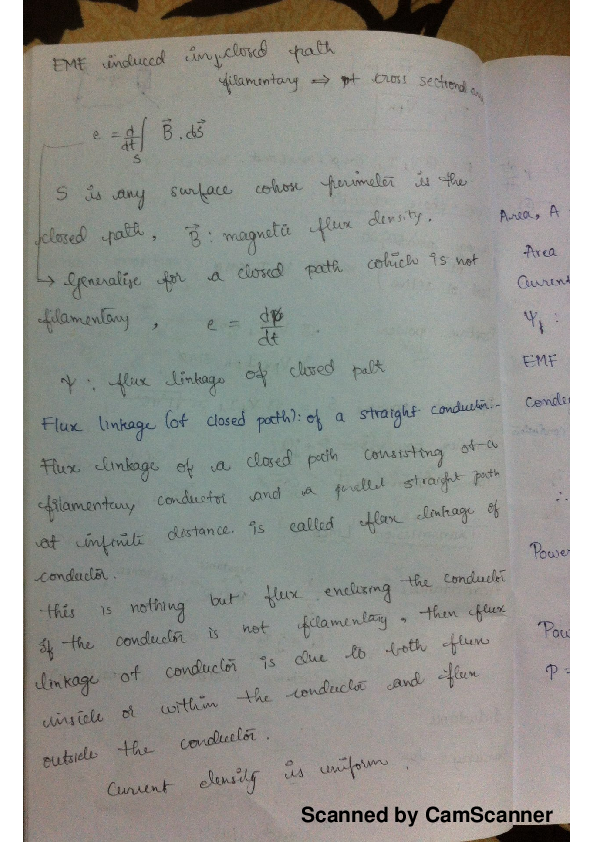 EMF induced in closed path
filamentary ⇒ cross sectional
e = d/dt ∫ B⃗ . ds⃗
S
S is any surface whose perimeter is the
closed path, B⃗ : magnetic flux density.
→ Generalise for a closed path which is not
filamentary, e = dψ/dt .
ψ : flux linkage of closed path
Flux linkage (of closed path): of a straight conductor:-
Flux linkage of a closed path consisting of a
filamentary conductor and a parallel straight path
at infinite distance. is called flux linkage of
conductor.
this is nothing but flux enclosing the conductor
If the conductor is not filamentary, then flux
linkage of conductor is due to both flux
inside or within the conductor and flux
outside the conductor.
Current density is uniform.
Area, A
Area
Current
Ψ₁ :
EMF
∴
Power
P =
Scanned by CamScanner